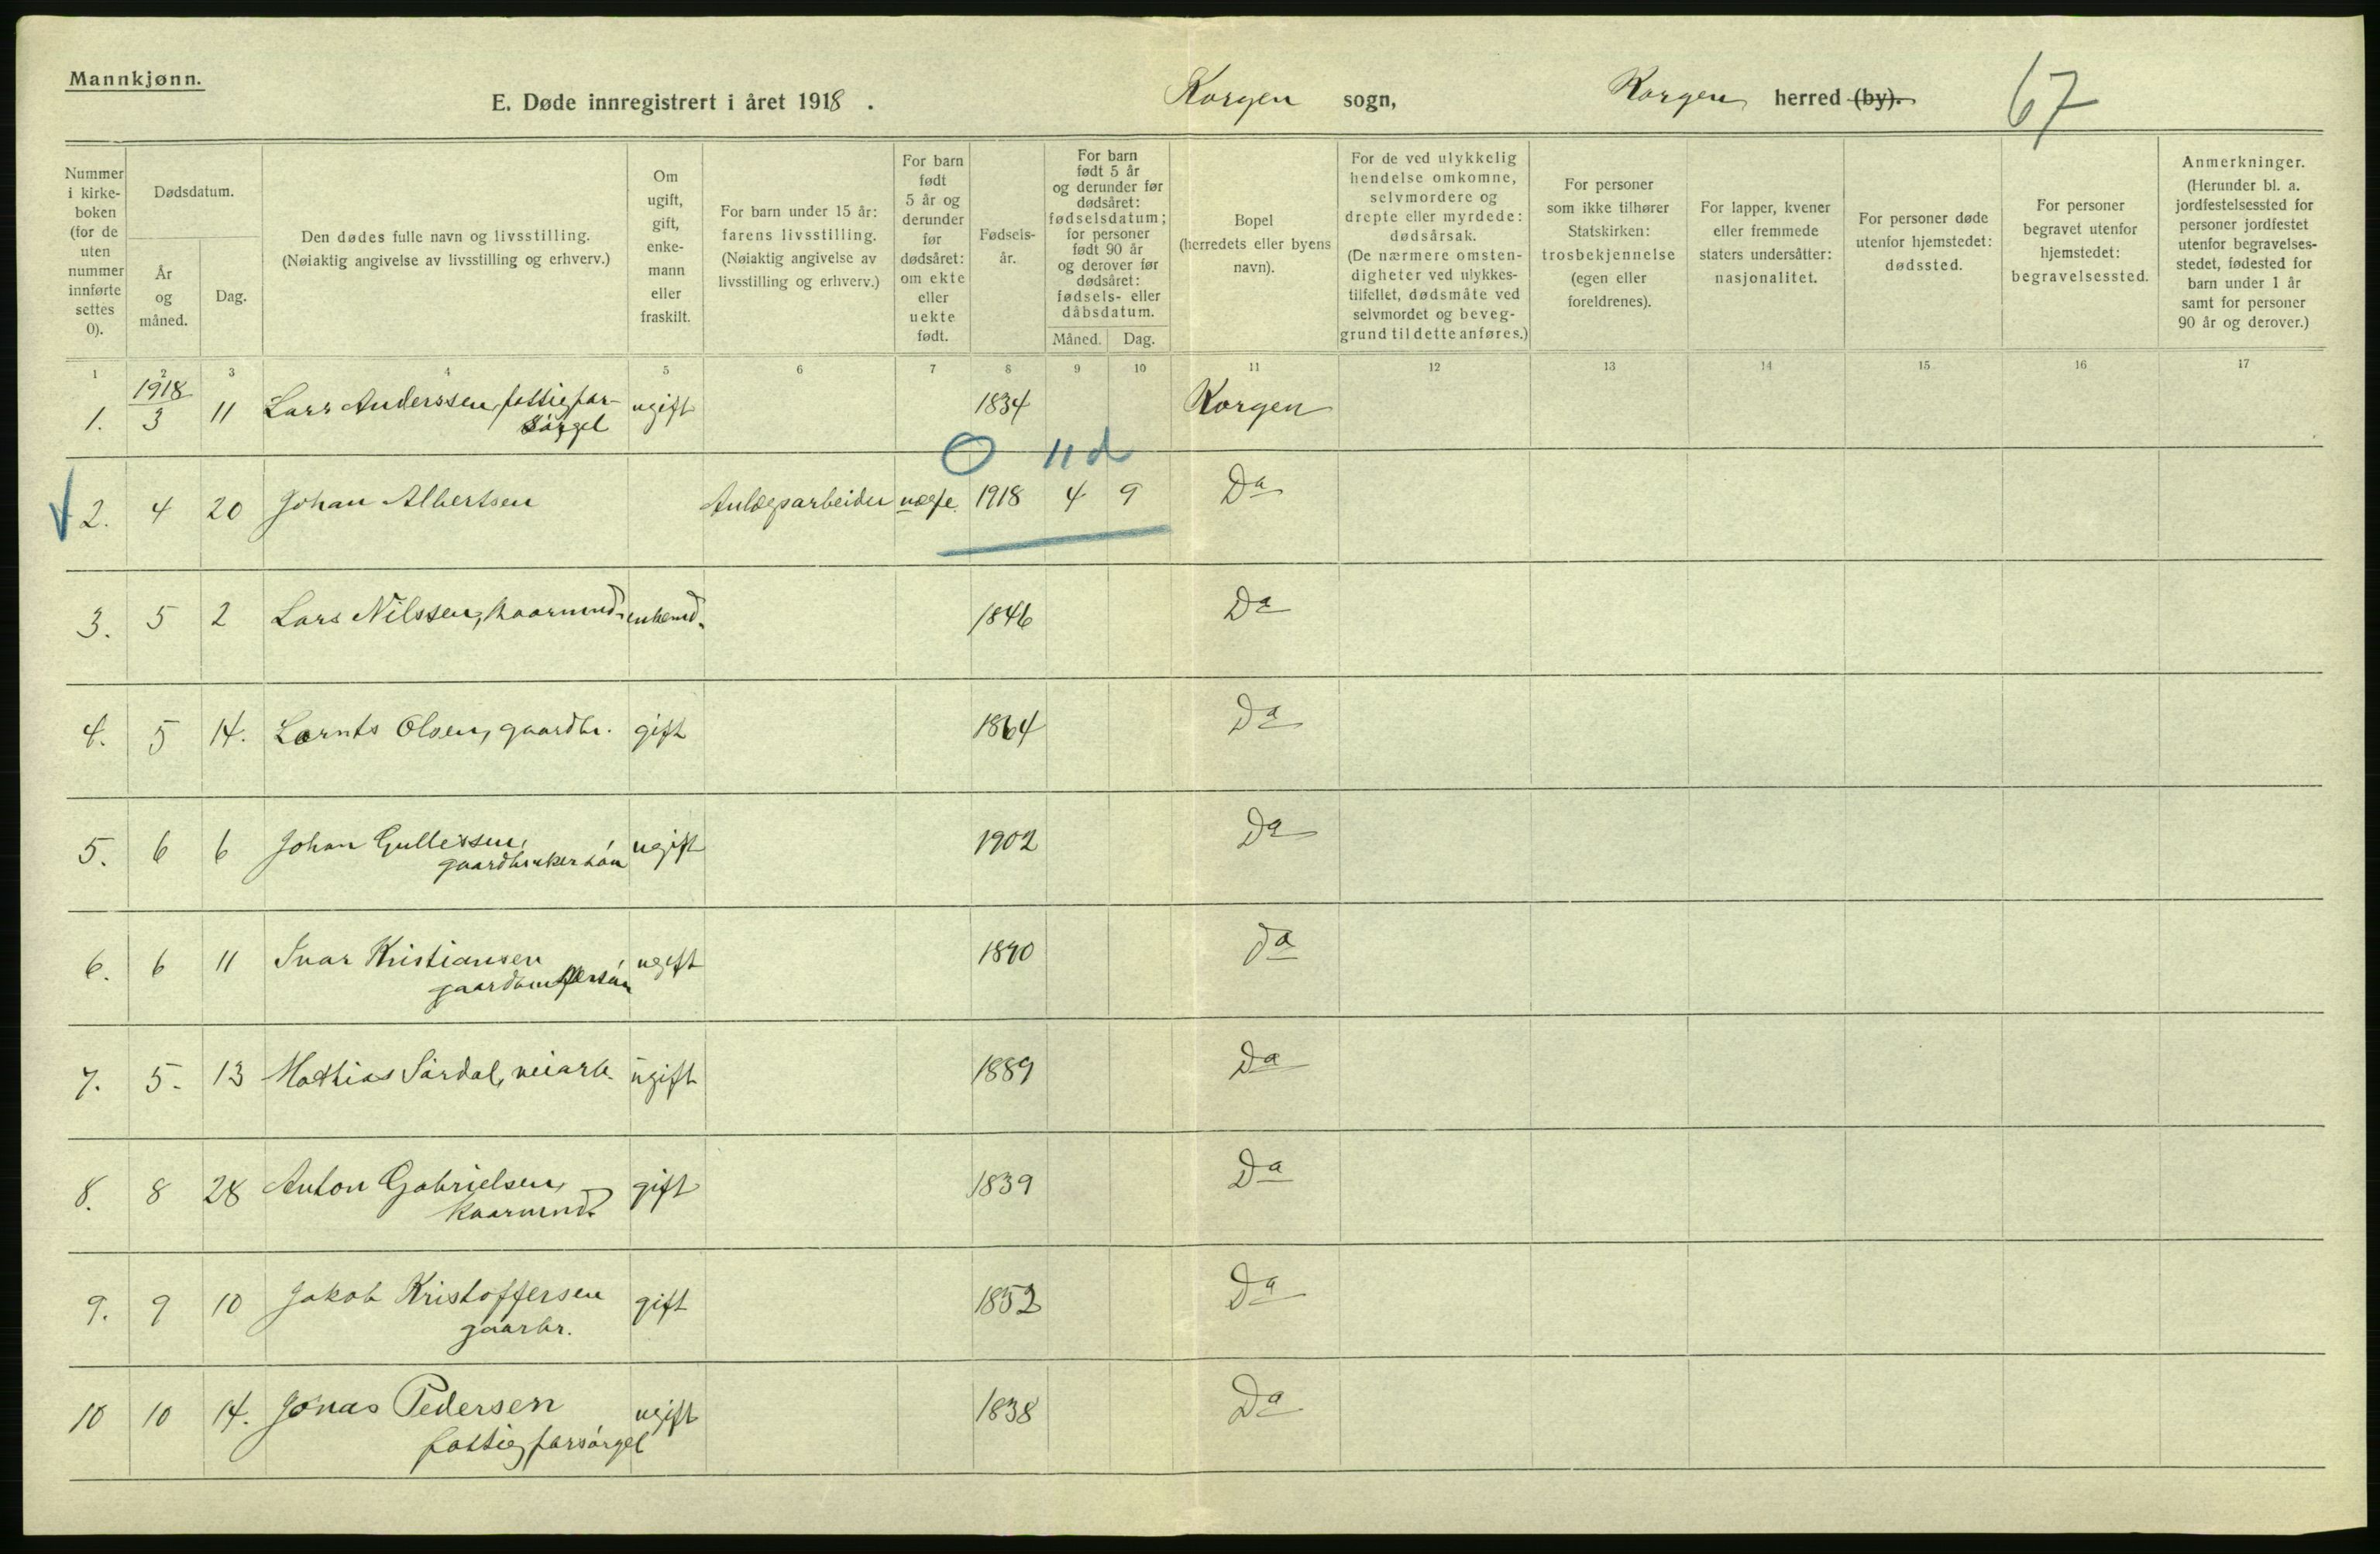 Mannkjønn.
E. Døde innregistrert i året 1918. Korgen sogn, Korgen herred (by). 67
Nummer i kirkeboken (for de uten nummer innførte settes 0).
Dødsdatum.
År og måned.
Dag.
Den dødes fulle navn og livsstilling.
(Nøiaktig angivelse av livsstilling og erhverv.)
Om ugift, gift, enkemann eller fraskilt.
For barn under 15 år: farens livsstilling.
(Nøiaktig angivelse av livsstilling og erhverv.)
For barn født 5 år og derunder før dødsåret: om ekte eller uekte født.
Fødselsår.
For barn født 5 år og derunder før dødsåret: fødselsdatum; for personer født 90 år og derover før dødsåret: fødsels- eller dåbsdatum.
Måned.
Dag.
Bopel
(herredets eller byens navn).
For de ved ulykkelig hendelse omkomne, selvmordere og drepte eller myrdede: dødsårsak.
(De nærmere omstendigheter ved ulykkestilfellet, dødsmåte ved selvmordet og beveggrund til dette anføres.)
For personer som ikke tilhører Statskirken: trosbekjennelse (egen eller foreldrenes).
For lapper, kvener eller fremmede staters undersåtter: nasjonalitet.
For personer døde utenfor hjemstedet: dødssted.
For personer begravet utenfor hjemstedet: begravelsessted.
Anmerkninger.
(Herunder bl. a. jordfestelsessted for personer jordfestet utenfor begravelsesstedet, fødested for barn under 1 år samt for personer 90 år og derover.)
1 2 3 4 5 6 7 8 9 10 11 12 13 14 15 16 17
1918
1. 3 11 Lars Anderssen, fattigforsørgel ugift 1834 Korgen
0 11 d
2. 4 20 Johan Albertsen Anlægsarbeider uægte. 1918 4 9 Da
3. 5 2 Lars Nilssen, kaarmnd. enkemd. 1846 Da
4. 5 14. Lornts Olsen, gaardbr. gift 1864 Da
5. 6 6 Johan Gullessen,
gaardbrukersøn ugift 1902 Da
6. 6 11 Ivar Kristiansen
gaardbrukersøn ugift 1890 Da
7. 5. 13 Mathias Sørdal, veiarb. ugift 1889 Da
8. 8 28 Anton Gabrielsen,
kaarmnd. gift 1839 Da
9. 9 10 Jakob Kristoffersen
gaarbr. gift 1852 Da
10 10 14. Jonas Pedersen
fattigforsørgel ugift 1838 Da